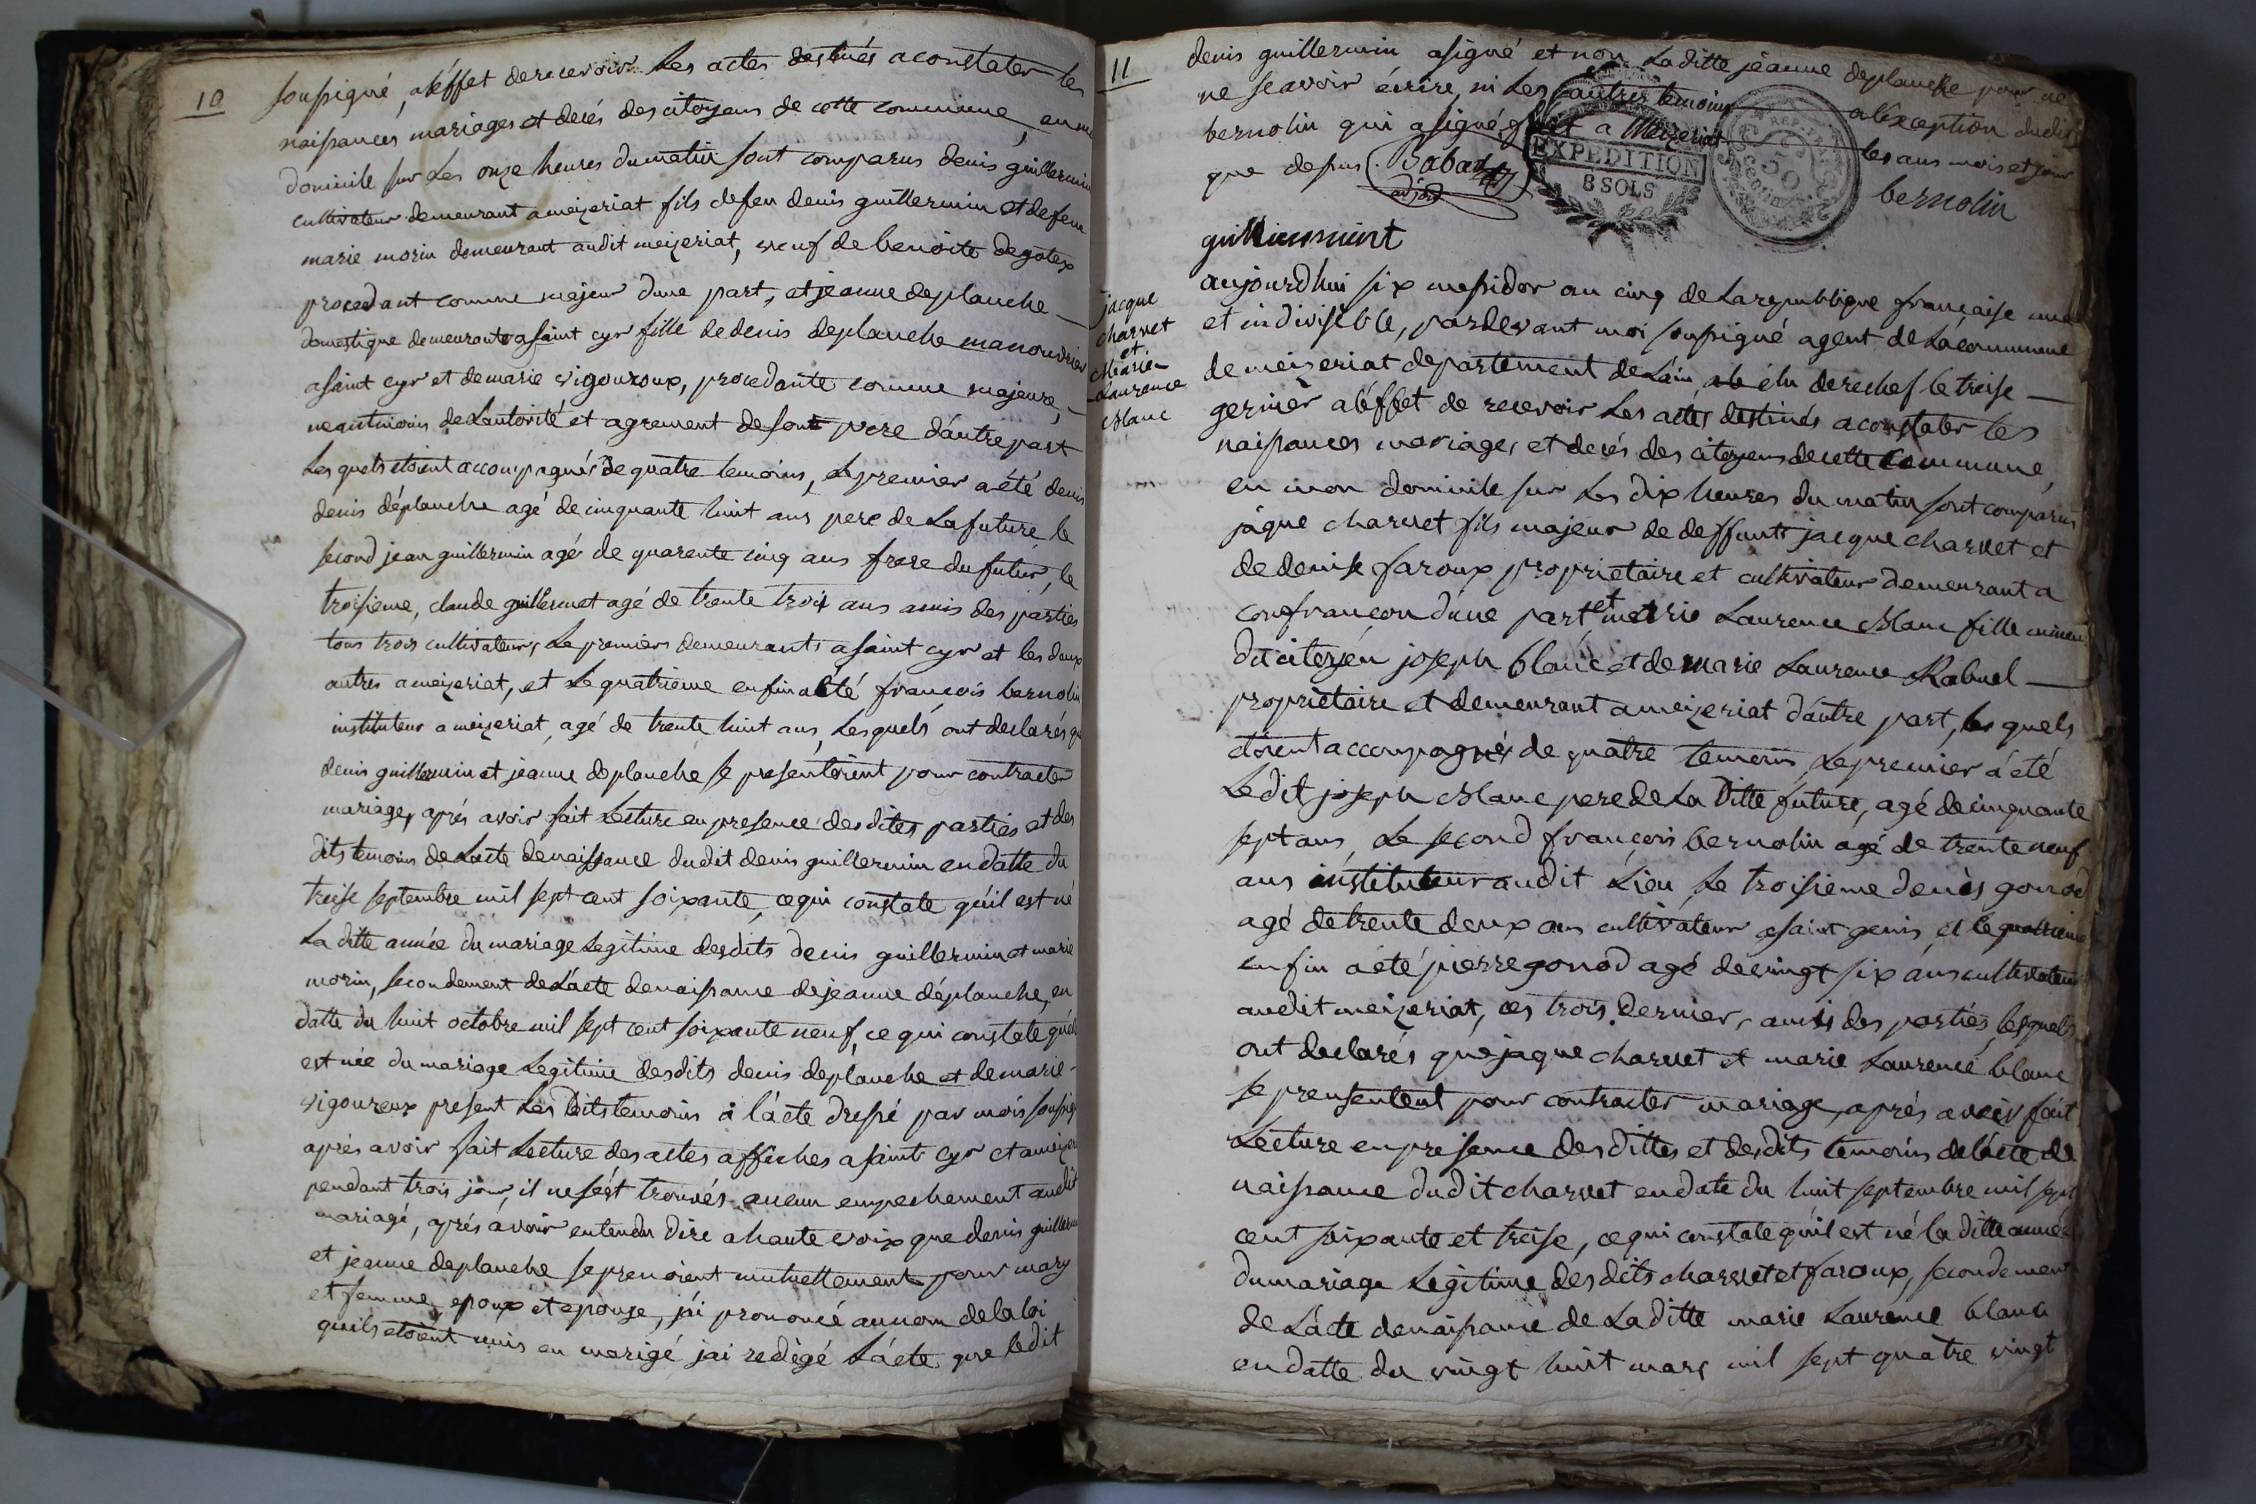 10
soussigné, a l'éffet de recevoir Les actes destinés a constater les
naissances mariages et decés des citoyens de cette commune, en mon
domicile sur Les onze heures du matin sont comparus denis guillermin
cultivateur demeurant a meizeriat fils de feu denis guillermin et de feue
marie morin demeurant audit meizeriat, veuf de benoite degotex
procedant comme majeur dune part, et jeanne deplanche
domestique demeurante a saint cyr fille de denis deplanche manouvrier
a saint cyr et de marie vigouroux, procedante comme majeure,
neantmoins de Lautorité et agrement de son pere d'autre part
Les quels etoient accompagnés de quatre temoins, Le premier a été denis
denis déplanche agé de cinquante huit ans pere de La future, le
second jean guillermin agé de quarente cinq ans frere du futur, le
troisieme, claude guillermet agé de trente trois ans amis des parties
tous trois cultivateurs, Le premiers demeurants a saint cyr et les deux
autres a meizeriat, et Le quatrieme enfin a été françois bernolin
instituteur a meizeriat, agé de trente huit ans, Lesquels ont declarés que
denis guillermin et jeanne deplanche se presentoient pour contracter
mariage, aprés avoir fait Lecture en presence des dites parties et des
dits temoins de Lacte de naissance dudit denis guillermin en datte du
treise septembre mil sept cent soixante, ce qui constate qu'il est né
La ditte année du mariage Legitime desdits denis guillermin et marie
morin, secondement de L'acte de naissance de jeanne déplanche, en
datte du huit octobre mil sept cent soixante neuf, ce qui constate quelle
est née du mariage Legitime desdits denis deplanche et de marie
vigoureux present Les dits temoins à l'acte dressé par mois soussigné
aprés avoir fait Lecture des actes affichés a saint cyr et a meizeriat
pendant trois jour, il ne s'est trouvés aucun empechement audit
mariagé, aprés avoir entendu dire a haute voix que denis guillermin
et jeanne deplanche se prenoient mutuellement pour mary
et femme, epoux et epouse, j'ai prononcé au nom de la loi
quils etoient unis en marigé j'ai redigé L'acte que ledit
11
denis guillermin a signé et non La ditte jeanne deplanche pour ne
ne scavoir écrire, ni Les autres temoins a l'exception dudit
bernolin qui a signé a Meizeriat les ans mois et jour
que dessus. Babad
adjoint
bernolin
EXPEDITION
8 SOLS
REP. FR
50
Centimes
guilliermint
jacque
charvet
et
Marie
Laurence
Blanc
aujourdhui six messidor an cinq de La republique française une
et indivisible, pardevant moi soussigné agent de La commune
de meizeriat departement de L'ain, élu derechef le treise
germier a l'éffet de recevoir Les actes destinés a constater les
naissances mariages et decés des citoyens de cette commune,
en mon domicile sur Les dix heures du matin sont comparus
jaque charvet fils majeur de deffunt jacque charvet et
de denise faroux proprietaire et cultivateur demeurant a
confrançon d'une part et marie Laurence Blanc fille mineur
du citoyen joseph blanc et de marie Laurence Rabuel
proprietaire et demeurant a meizeriat d'autre part, les quels
etoient accompagnés de quatre temoins, Le premier á été
Le dit joseph Blanc pere de La ditte future, agé de cinquante
sept ans, Le second françois bernolin agé de trente neuf
ans instituteur audit Lieu, Le troisieme denis gonod
agé de trente deux ans cultivateur a saint genis, et le quatrieme
enfin a été pierre gonod agé de vingt six ans cultivateur
audit meizeriat, ces trois dernier, amis des parties, lesquels
ont declarés que jaque charvet et marie Laurence blanc
se prensentent pour contracter mariage, aprés avoir fait
Lecture en presence des dittes et desdits temoins de l'acte de
naissance dudit charvet en date du huit septembre mil sept
cent soixante et treise, ce qui constate qu'il est né la ditte année
du mariage Legitime desdits charvet et faroux, secondement
de L'acte de naissance de La ditte marie Laurence blanc
en datte du vingt huit mars mil sept quatre vingt